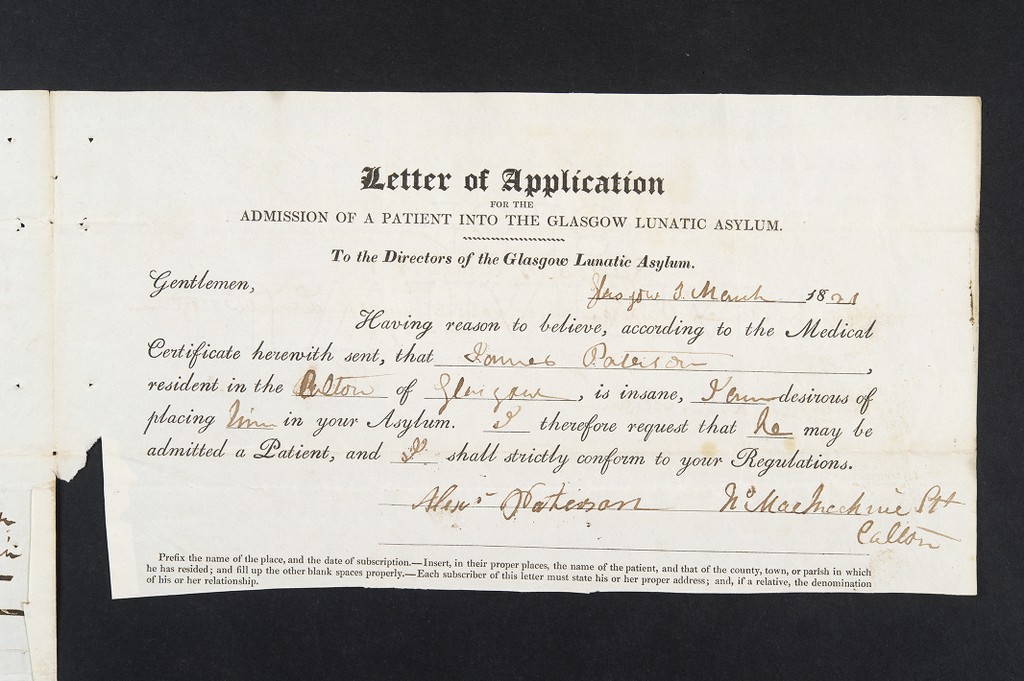 Letter of Application
FOR THE
ADMISSION OF A PATIENT INTO THE GLASGOW LUNATIC ASYLUM.
To the Directors of the Glasgow Lunatic Asylum.
Gentlemen,
Glasgow 3 March 1821
Having reason to believe, according to the Medical
Certificate herewith sent, that James Paterson,
resident in the Calton of Glasgow, is insane, I am desirous of
placing him in your Asylum. I therefore request that he may be
admitted a Patient, and I shall strictly conform to your Regulations.
Alexr Paterson
Calton
Prefix the name of the place, and the date of subscription.—Insert, in their proper places, the name of the patient, and that of the county, town, or parish in which
he has resided; and fill up the other blank spaces properly.—Each subscriber of this letter must state his or her proper address; and, if a relative, the denomination
of his or her relationship.